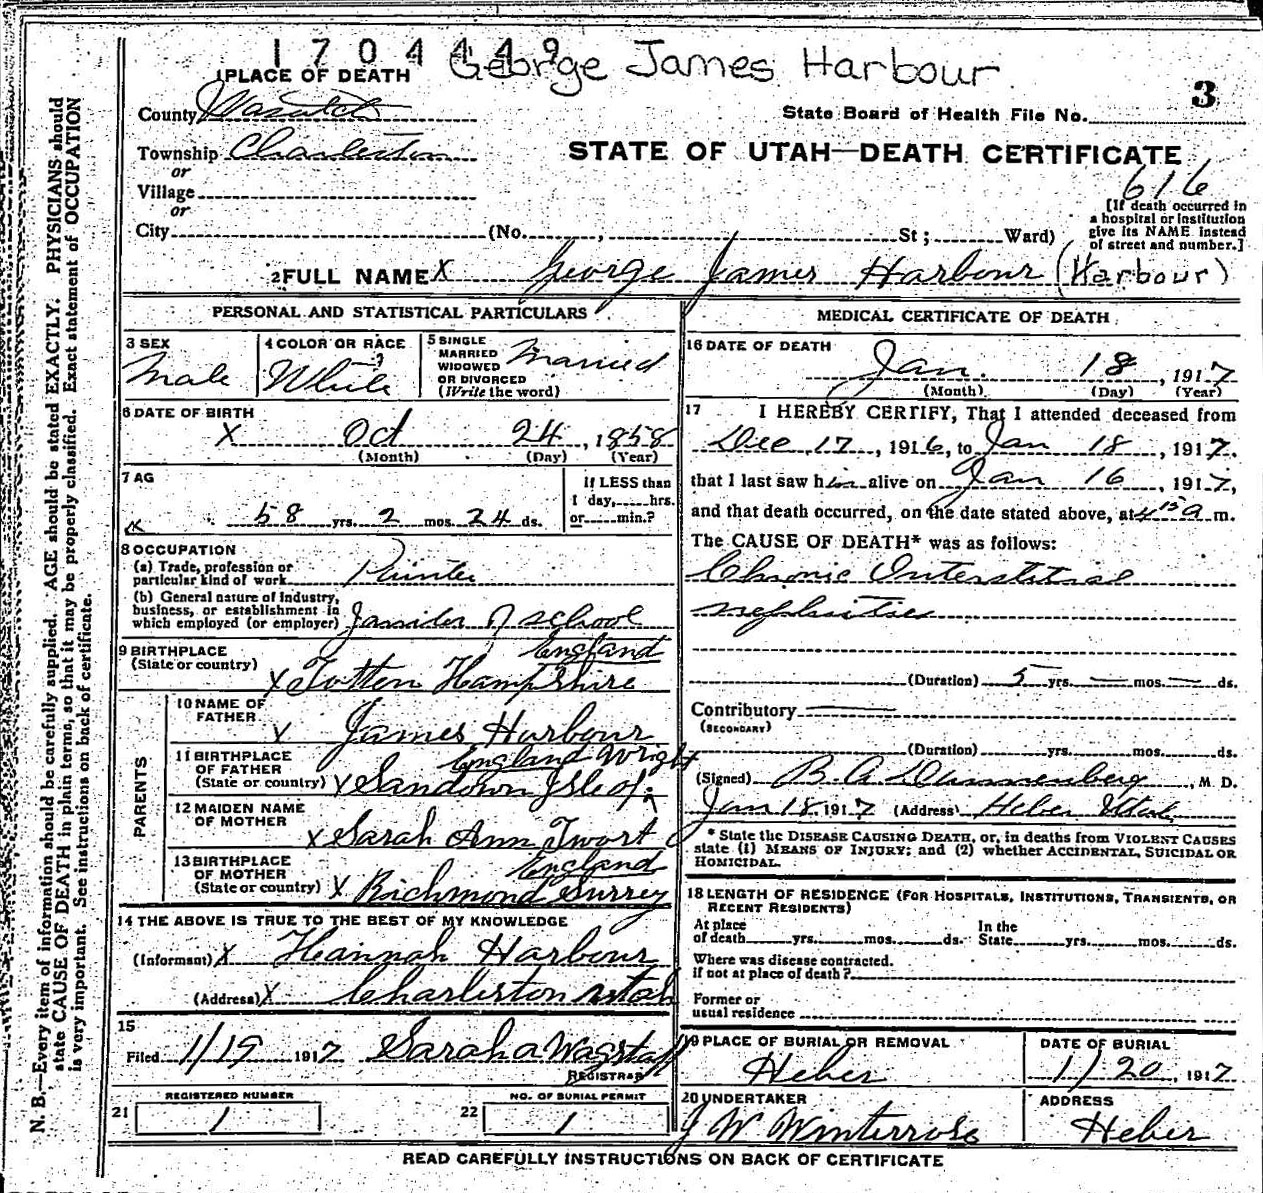 1704449
George James Harbour
1 PLACE OF DEATH
3
County Wasatch
State Board of Health File No.
Township Charleston
STATE OF UTAH—DEATH CERTIFICATE
or
616
Village
or
City (No. , St ; Ward)
[If death occurred in
a hospital or institution
give its NAME instead
of street and number.]
2 FULL NAME X George James Harbour (Harbour)
PERSONAL AND STATISTICAL PARTICULARS
3 SEX
Male
4 COLOR OR RACE
White
5 SINGLE
MARRIED
WIDOWED
OR DIVORCED
(Write the word)
Married
6 DATE OF BIRTH
X Oct 24, 1858
(Month) (Day) (Year)
7 AG
X 58 yrs. 2 mos. 24 ds.
If LESS than
1 day, hrs.
or min.?
8 OCCUPATION
(a) Trade, profession or
particular kind of work Painter
(b) General nature of industry,
business, or establishment in
which employed (or employer) Janitor of school
9 BIRTHPLACE
(State or country)
England
X Totten Hampshire
PARENTS
10 NAME OF
FATHER
X James Harbour
11 BIRTHPLACE
OF FATHER
(State or country)
England Wright
X Sandown Isle of
12 MAIDEN NAME
OF MOTHER
X Sarah Ann Twort
13 BIRTHPLACE
OF MOTHER
(State or country)
England
X Richmond Surrey
14 THE ABOVE IS TRUE TO THE BEST OF MY KNOWLEDGE
(Informant) X Hannah Harbour
(Address) X Charleston Utah
15
Filed 1/19 1917 Sarah A Wagstaff
REGISTRAR
21
REGISTERED NUMBER
1
22
NO. OF BURIAL PERMIT
1
MEDICAL CERTIFICATE OF DEATH
16 DATE OF DEATH
Jan. 18, 1917
(Month) (Day) (Year)
17 I HEREBY CERTIFY, That I attended deceased from
Dec 17, 1916, to Jan 18, 1917.
that I last saw him alive on Jan 16, 1917,
and that death occurred, on the date stated above, at 4 15 a m.
The CAUSE OF DEATH* was as follows:
Chronic Interstitial
nephritis
(Duration) 5 yrs. — mos. — ds.
Contributory —
(SECONDARY)
(Duration) yrs. mos. ds.
(Signed) B. A. Dannenberg, M D.
Jan 18 1917 (Address) Heber Utah
* State the DISEASE CAUSING DEATH, or, in deaths from VIOLENT CAUSES
state (1) MEANS OF INJURY; and (2) whether ACCIDENTAL, SUICIDAL OR
HOMICIDAL.
18 LENGTH OF RESIDENCE (FOR HOSPITALS, INSTITUTIONS, TRANSIENTS, OR
RECENT RESIDENTS)
At place In the
of death yrs. mos. ds. State yrs. mos. ds.
Where was disease contracted.
if not at place of death?
Former or
usual residence
19 PLACE OF BURIAL OR REMOVAL
Heber
DATE OF BURIAL
1/20, 1917
20 UNDERTAKER
J W Winterrose
ADDRESS
Heber
READ CAREFULLY INSTRUCTIONS ON BACK OF CERTIFICATE
N. B.—Every item of information should be carefully supplied. AGE should be stated EXACTLY. PHYSICIANS should
state CAUSE OF DEATH in plain terms, so that it may be properly classified. Exact statement of OCCUPATION
is very important. See instructions on back of certificate.